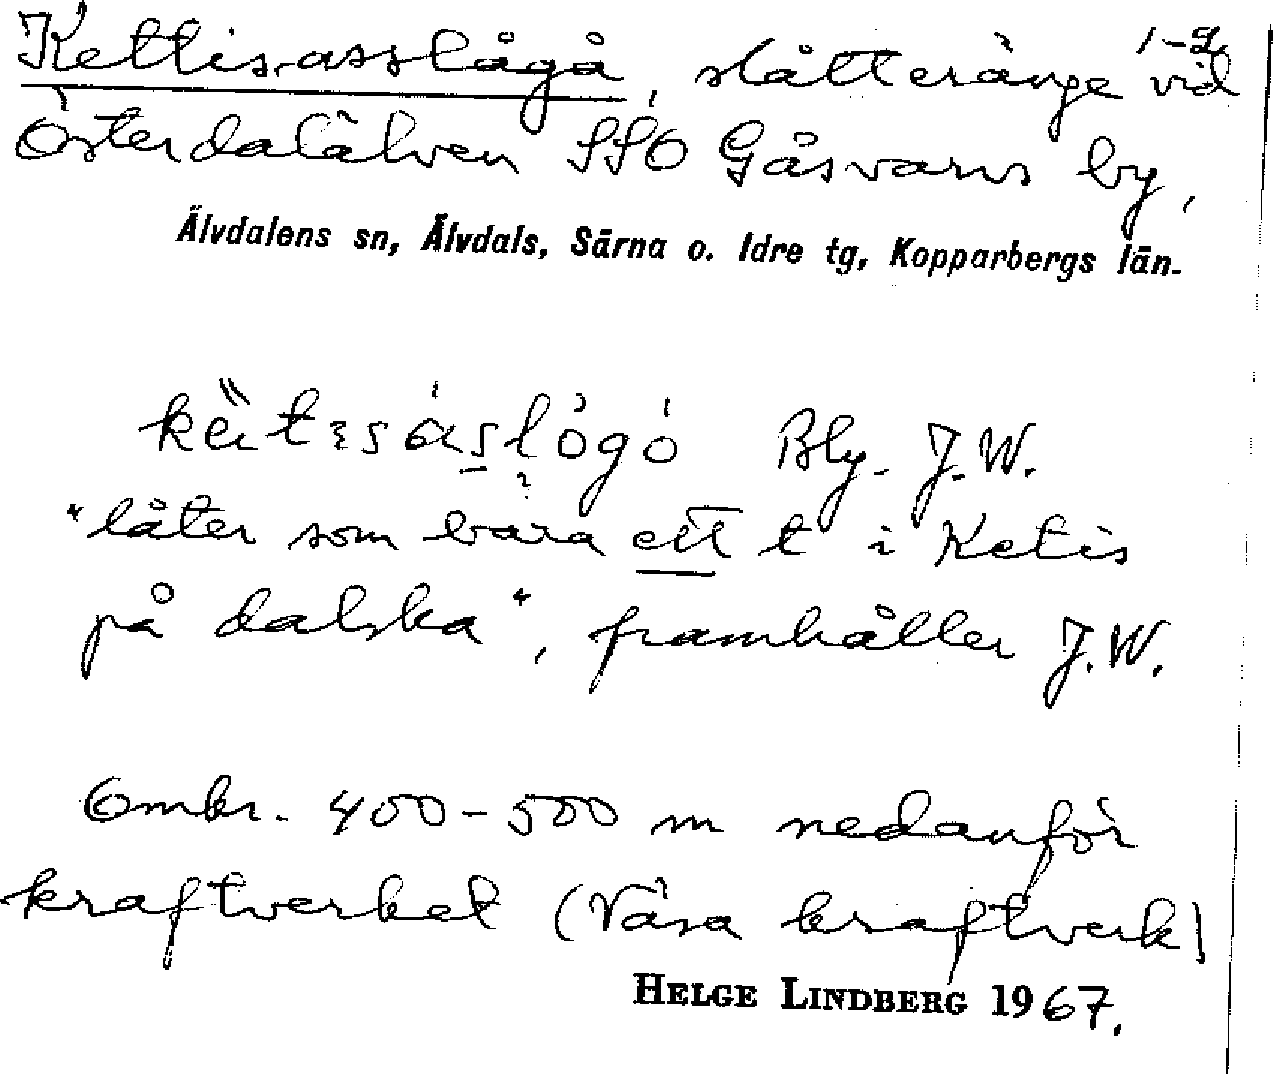 Kettis-asslågå, slåtteränge vid 1-2
Österdalälven SSO Gåsvarvs by,
Älvdalens sn, Älvdals, Särna o. Idre tg, Kopparbergs län.
Bly. J.W.
"låter som bara ett t i Ketis
på dalska", framhåller J.W.
Omkr. 400-500 m nedanför
kraftverket (Väsa kraftverk)
HELGE LINDBERG 1967.